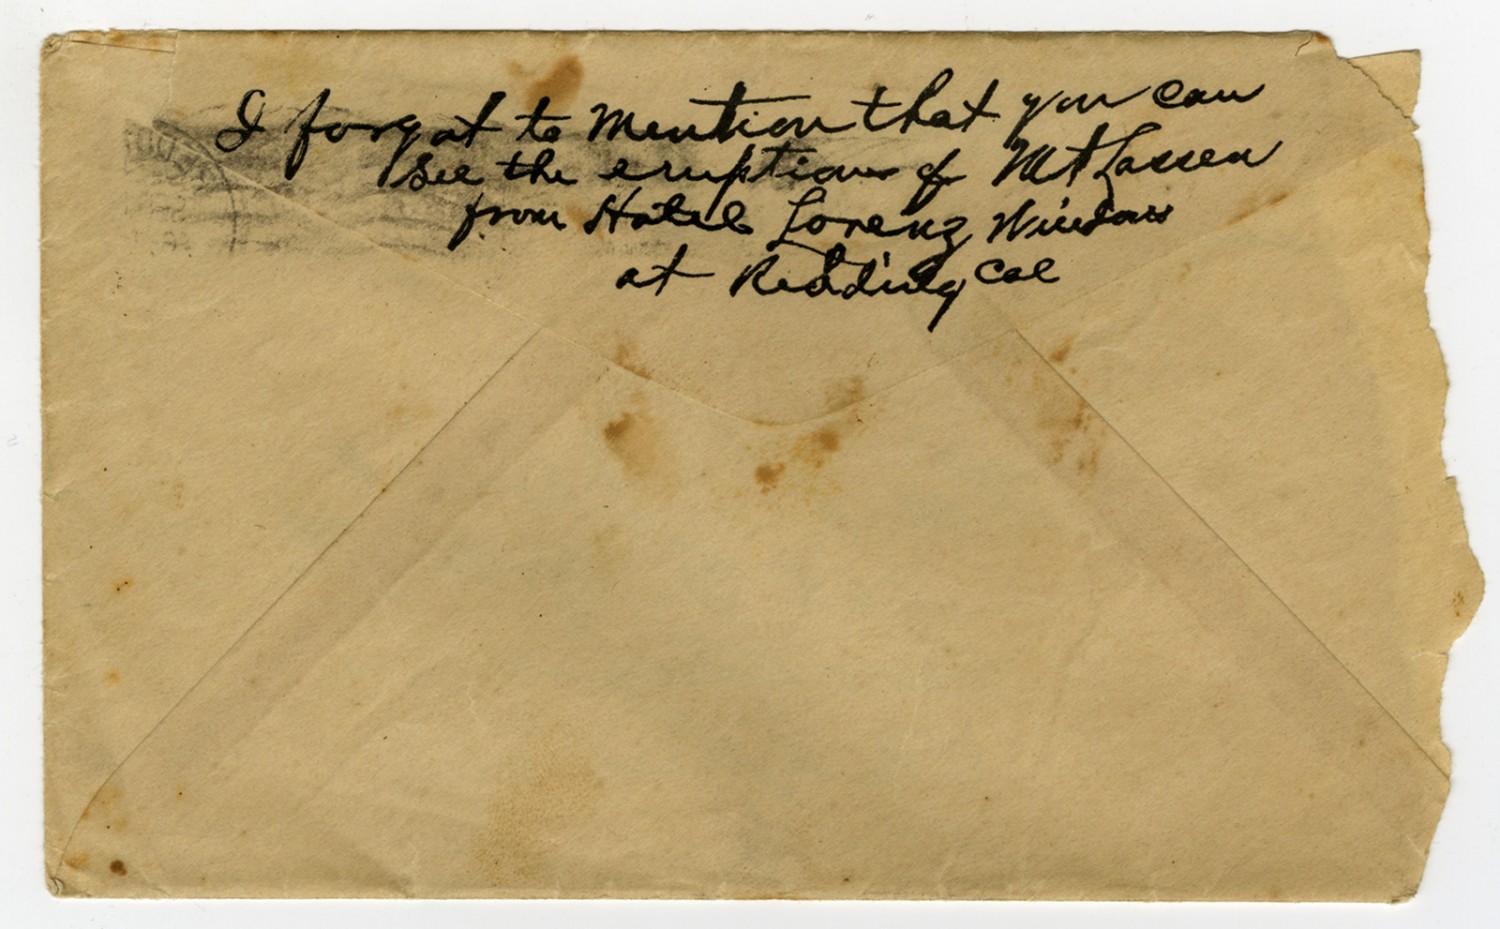 I forgot to Mention that you can
See the eruption of Mt Lassen
from Hotel Lorenz Windows
at Redding Cal